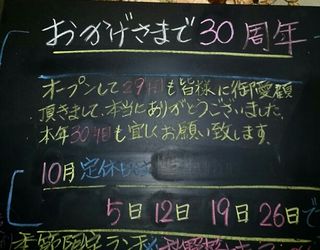 おかげさまで30周年
オープンして29間も皆様に御愛顧
頂きまして、本当にありがとうございました。
本年30間も宜しくお願い致します。
10月 定休日
5日 12日 19日 26日で
季節限定ラン